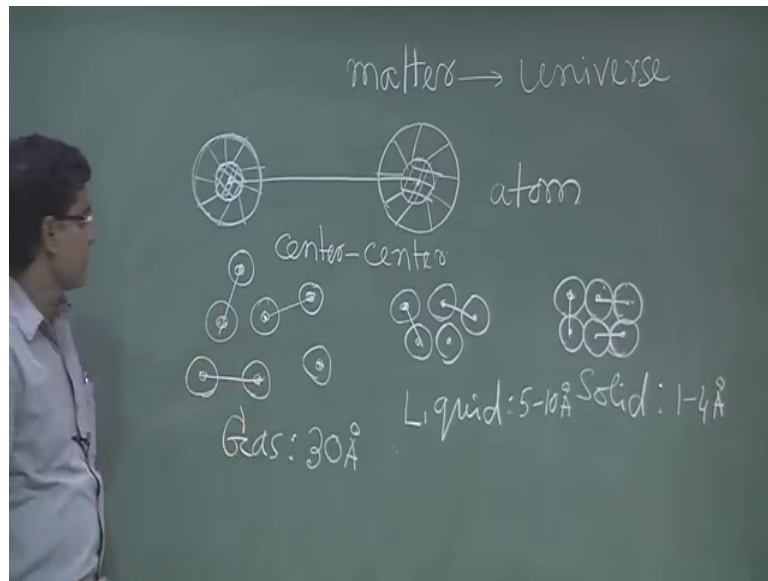 matter → universe
atom
center-center
Gas: 30Å
Liquid: 5-10Å
Solid: 1-4Å